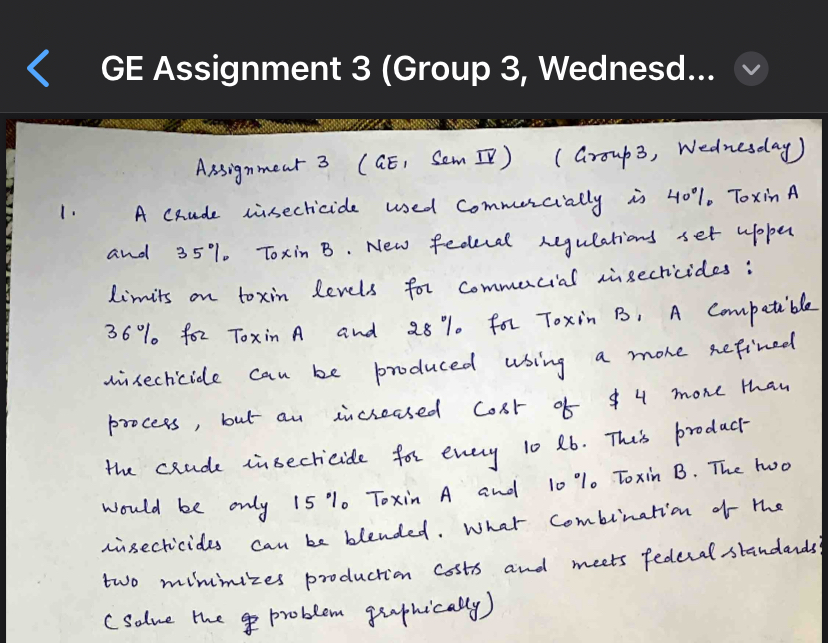 GE Assignment 3 (Group 3, Wednesd...
Assignment 3 (GE, Sem IV) (Group 3, Wednesday)
1. A crude insecticide used commercially is 40% Toxin A
and 35% Toxin B. New federal regulations set upper
limits on toxin levels for commercial insecticides :
36% for Toxin A and 28% for Toxin B. A Compatible
insecticide can be produced using a more refined
process, but an increased cost of $ 4 more than
the crude insecticide for every 10 lb. This product
would be only 15% Toxin A and 10% Toxin B. The two
insecticides can be blended. What combination of the
two minimizes production costs and meets federal standards?
(Solve the problem graphically)